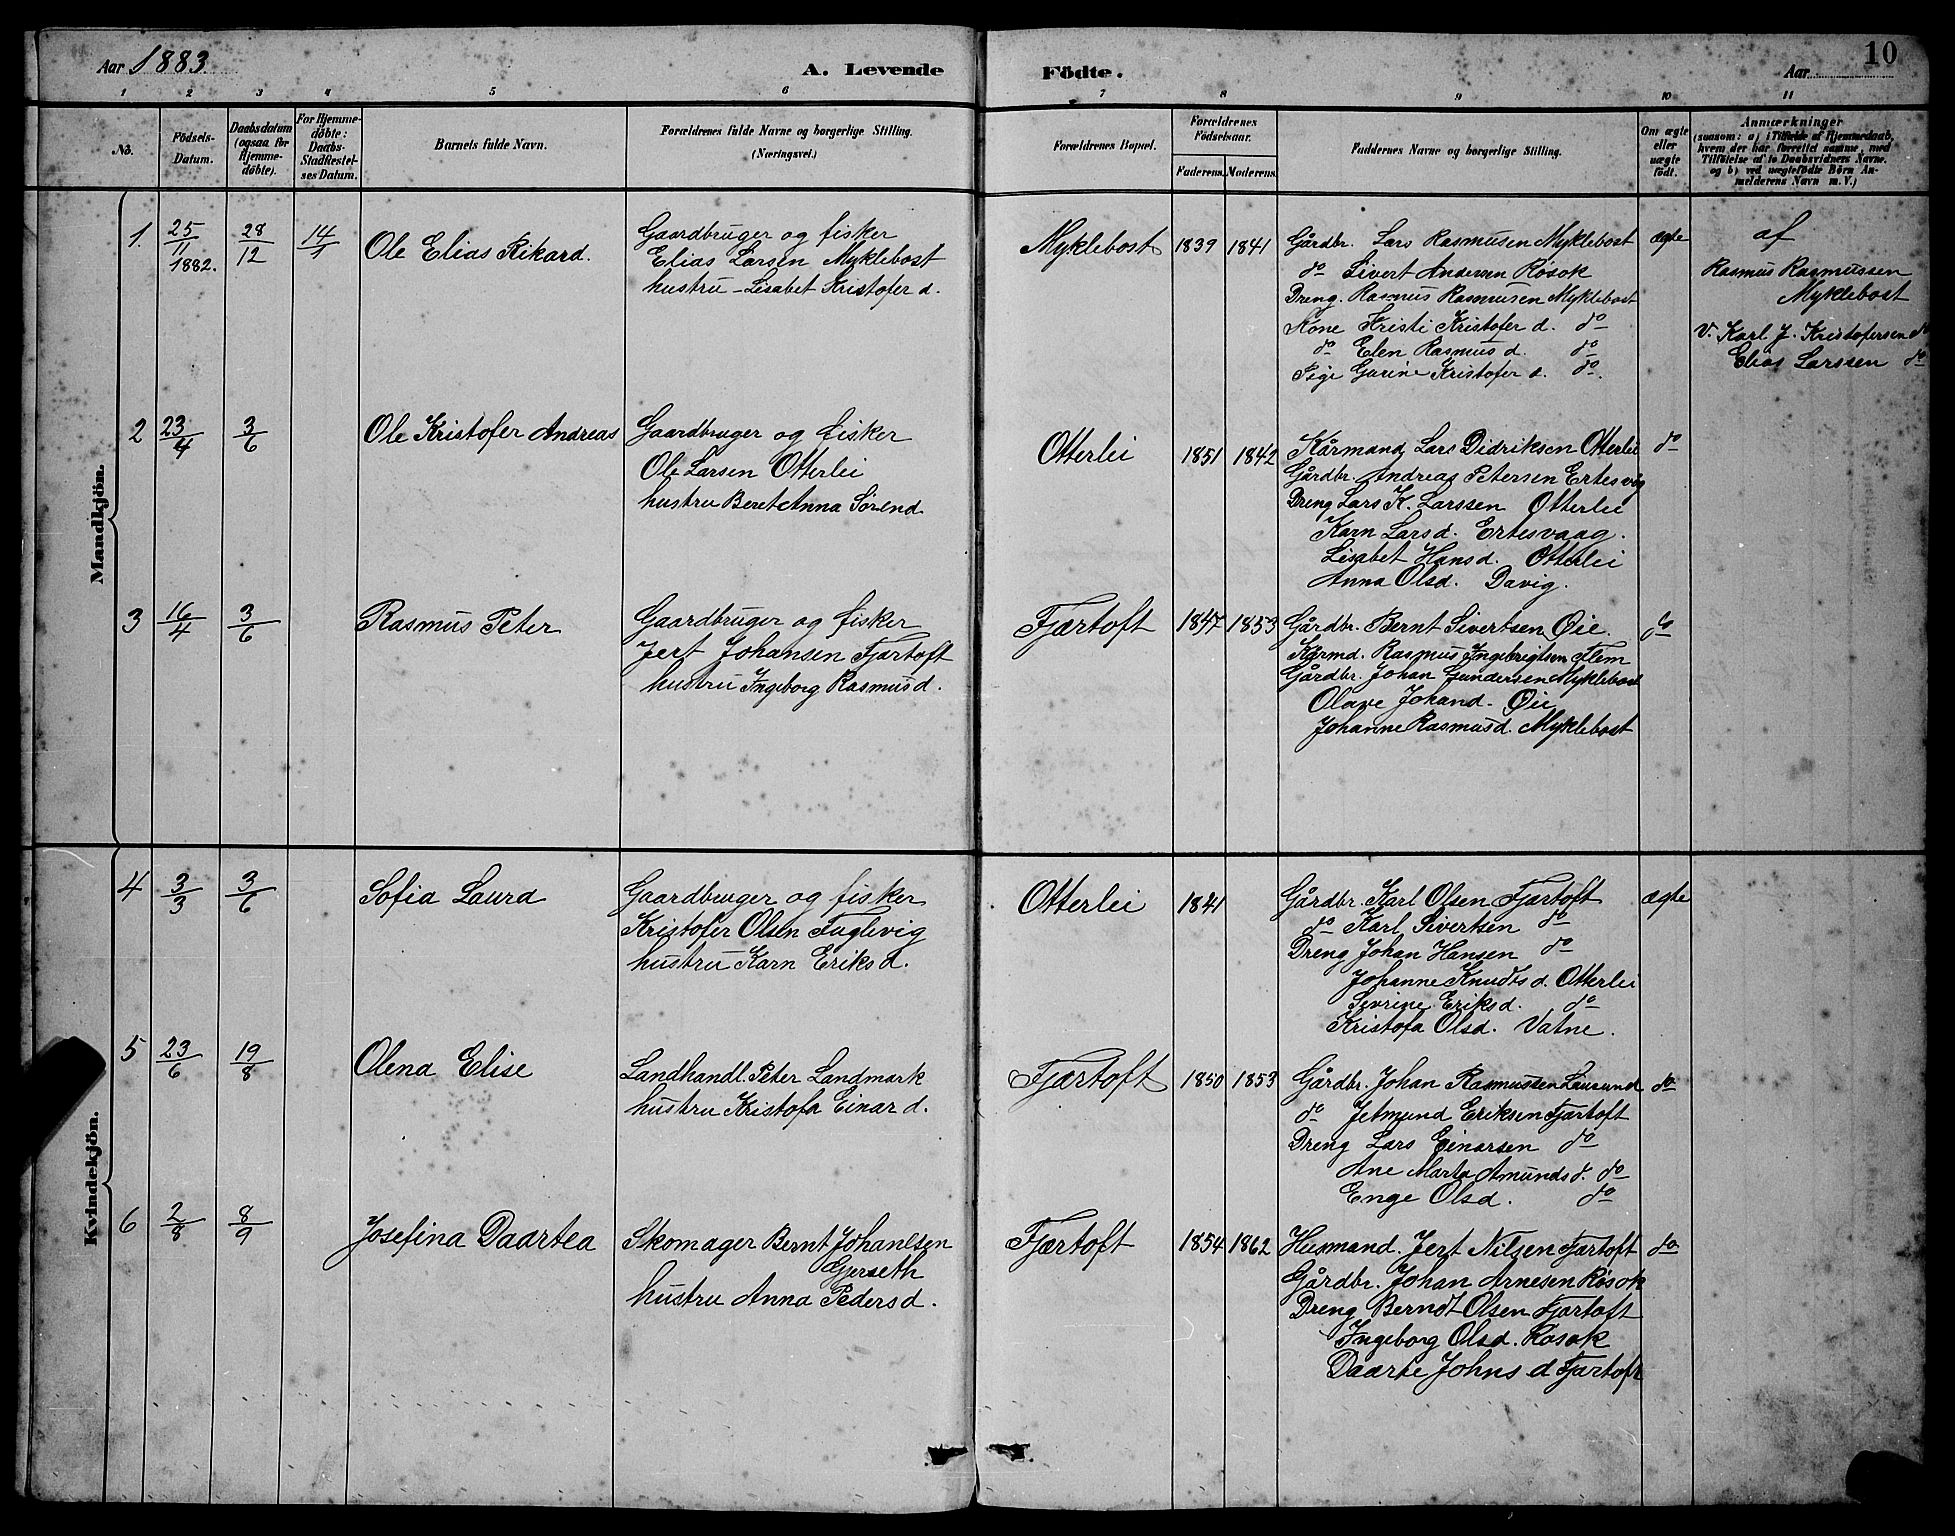 Aar 1883. A. Levende Födte. Aar 10
1 2 3 4 5 6 7 8 9 10 11
No.
Födsels-
Datum.
Daabsdatum
(ogsaa for
Hjemme-
døbte).
For Hjemme-
døbte:
Daabs-
Stadfæstel-
ses Datum.
Barnets fulde Navn.
Forældrenes fulde Navne og borgerlige Stilling.
(Næringsvei.)
Forældrenes Bopæl.
Forældrenes
Födselsaar.
Faderens. Moderens.
Faddernes Navne og borgerlige Stilling.
Om ægte
eller
uægte
født.
Anmærkninger
(saasom: a) i Tilfælde af Hjemmedaab,
hvem der har forrettet samme, med
Tilføielse af to Daabsvidners Navne,
og b) ved uægtefødte Børn An-
melderens Navn m. V.)
Mandkjön.
1. 25/11 1882. 28/12 14/1 Ole Elias Rikard.
Gaardbruger og fisker
Elias Larsen Myklebost
hustru - Lisabet Kristofer d.
Myklebost 1839 1841
Gårdbr. Lars Rasmusen Myklebost
do Sivert Andersen Røsok
Dreng. Rasmus Rasmusen Myklebost
Kone Kristi Kristofer d. do
do Elen Rasmus d. do
Pige Gurine Kristofer d. do.
ægte
af
Rasmus Rasmussen
Myklebost
V. Karl J. Kristofersen do
Elias Larssen do
2 23/4 3/6 Ole Kristofer Andreas
Gaardbruger og fisker
Ole Larsen Otterlei
hustru Beret Anna Sørend.
Otterlei 1851 1842
Kårmand Lars Didriksen Otterlei
Gårdbr. Andreas Petersen Ertesvåg
Dreng Lars K. Larssen Otterlei
Karn Larsd. Ertesvaag.
Lisabet Hansd. Otterlei
Anna Olsd. Davig.
do
3 16/4 3/6 Rasmus Peter
Gaardbruger og fisker
Jert Johansen Fjærtoft
hustru Ingeborg Rasmusd.
Fjærtoft 1847 1853
Gårdbr. Bernt Sivertsen Øie.
Kårmd. Rasmus Ingebrigtsen Flem
Gårdbr. Johan Gundersen Myklebost
Olave Johand. Øie
Johanne Rasmusd. Myklebost
do
Kvindekjön.
4 3/3 3/6 Sofia Laura
Gaardbruger og fisker
Kristofer Olsen Fuglevig
hustru Karn Eriks d.
Otterlei 1841
Gårdbr. Karl Olsen Fjærtoft
do Karl Sivertsen do
Dreng Johan Hansen do
Johanne Knudts d. Otterlei
Sevrine Eriks d. do
Kristofa Olsd. Vatne.
ægte
5 23/6 19/8 Olena Elise
Landhandl. Peter Landmark
hustru Kristofa Einar d.
Fjærtoft 1850 1853
Gårdbr. Johan Rasmussen Lausund
do Jetmund Eriksen Fjærtoft
Dreng Lars Einarsen do
Ane Marta Amunds d. do
Enge Olsd. do
do
6 2/8 8/9 Josefina Daartea
Skomager Bernt Johanesen
Gjerseth
hustru Anna Pedersd.
Fjærtoft 1854 1862
Husmand. Jert Nilsen Fjærtoft
Gårdbr. Johan Arnesen Røsok
Dreng Berndt Olsen Fjærtoft
Ingeborg Olsd. Røsok
Daarte Johns d Fjærtoft
do